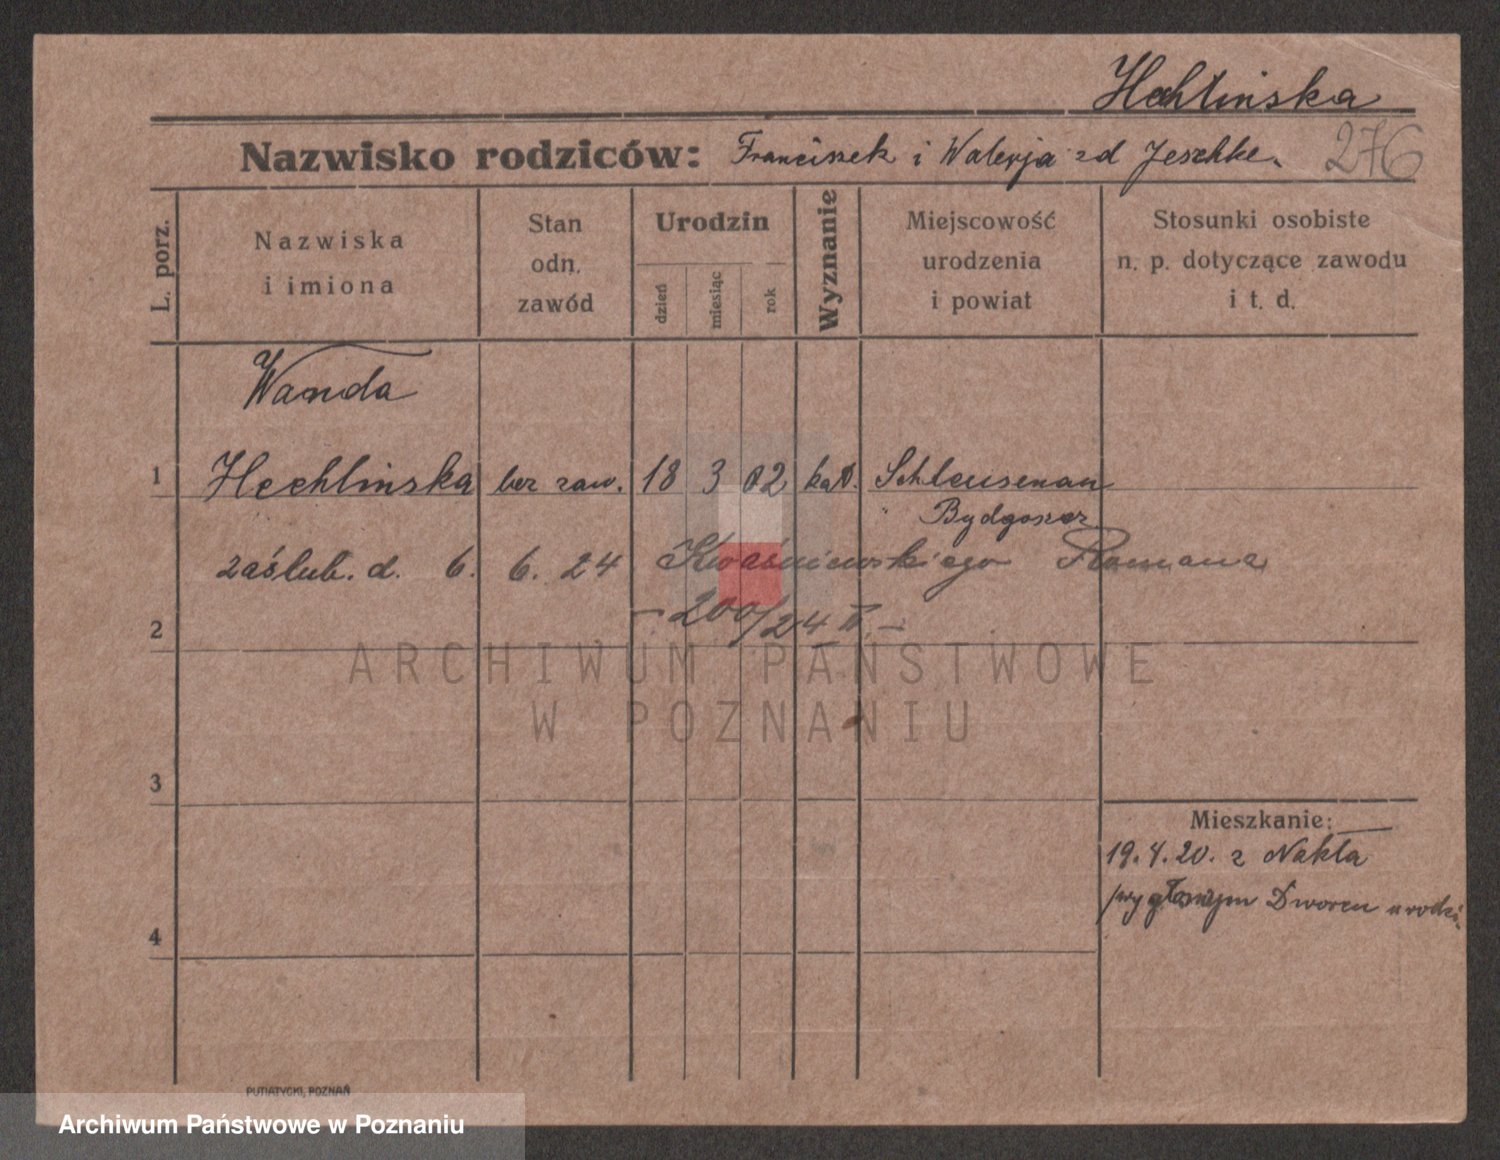 Hechlińska
Nazwisko rodziców: Franciszek i Walerja zd Jeschke. 276
L. porz.
Nazwiska
i imiona
Stan
odn.
zawód
Urodzin
dzień
miesiąc
rok
Wyznanie
Miejscowość
urodzenia
i powiat
Stosunki osobiste
n. p. dotyczące zawodu
i t. d.
Wanda
1 Hechlińska bez zaw. 18 3 02 kat. Schleusenau
Bydgoszcz
zaślub. d. 6. 6. 24 Kwaśniewskiego Romana
2 - 200/24 IV. -
ARCHIWUM PAŃSTWOWE
W POZNANIU
3
Mieszkanie:
19.4.20. z Nakła
Dworcu urodz.
4
PUTIATYCKI, POZNAŃ
Archiwum Państwowe w Poznaniu